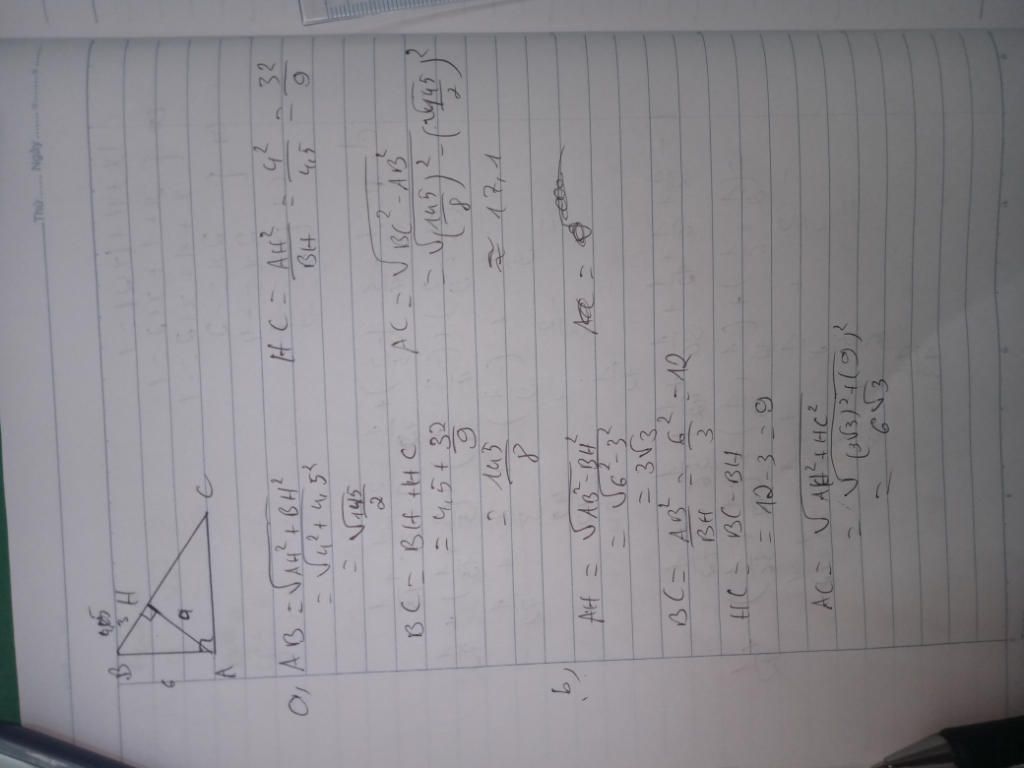 Thứ..... Ngày.........
B
4,5
3
H
6
4
A
C
a, AB = √AH² + BH²
= √4² + 4,5²
= √145/2
HC = AH²/BH = 4²/4,5 = 32/9
BC = BH + HC
= 4,5 + 32/9
= 145/8
AC = √BC² - AB²
= √(145/8)² - (√145/2)²
≈ 17,1
b, AH = √AB² - BH²
= √6² - 3²
= 3√3
BC = AB²/BH = 6²/3 = 12
HC = BC - BH
= 12 - 3 = 9
AC = √AH² + HC²
= √(3√3)² + (9)²
= 6√3